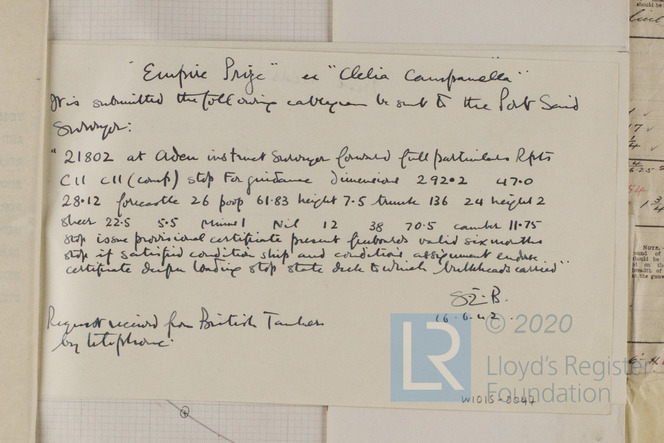 "Empire Prize" ex "Clelia Campanella"
It is submitted the following cablegram be sent to the Port Said
Surveyor:
"21802 at Aden instruct Surveyor forward full particulars Rpts
C11 C11 (comp) stop For guidance dimensions 292.2 47.0
28.12 forecastle 26 poop 61.83 height 7.5 trunk 136 24 height 2
sheer 22.5 5.5 Nil 12 38 70.5 camber 11.75
stop issue provisional certificate present freeboards valid six months
stop if satisfied condition ship and conditions assignment endorse
certificate deeper loading stop state deck to which bulkheads carried"
16.6.42.
Request received from British Tankers
by telephone.
© 2020
LR
Lloyd's Register
Foundation
W1015-0047